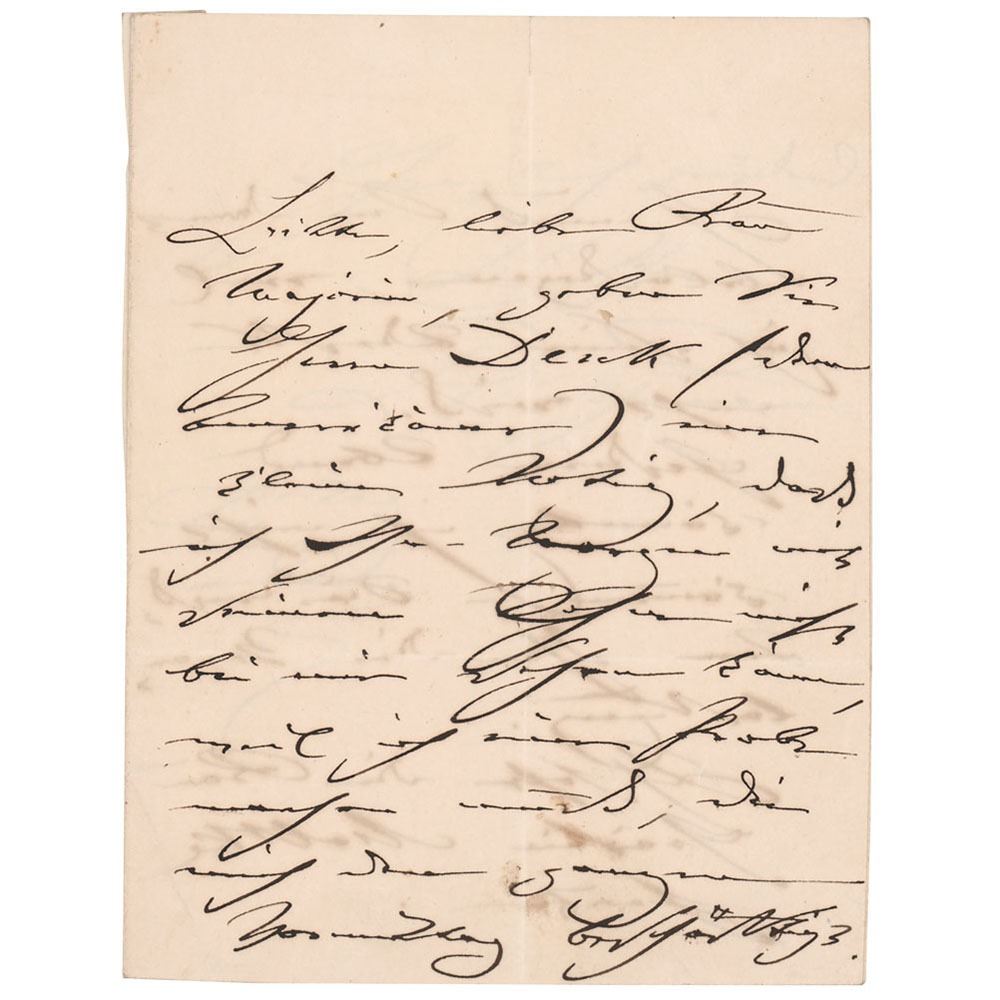 Bitte, liebe Frau
Majorin, geben Sie
Herrn Desck
einer
kleine Notiz, daß
ich Ihn morgen
seinem Sohn nicht
bei mir sehen kann
weil ich eine Probe
machen muß, die
mich den ganzen
Vormittag beschäftigt.